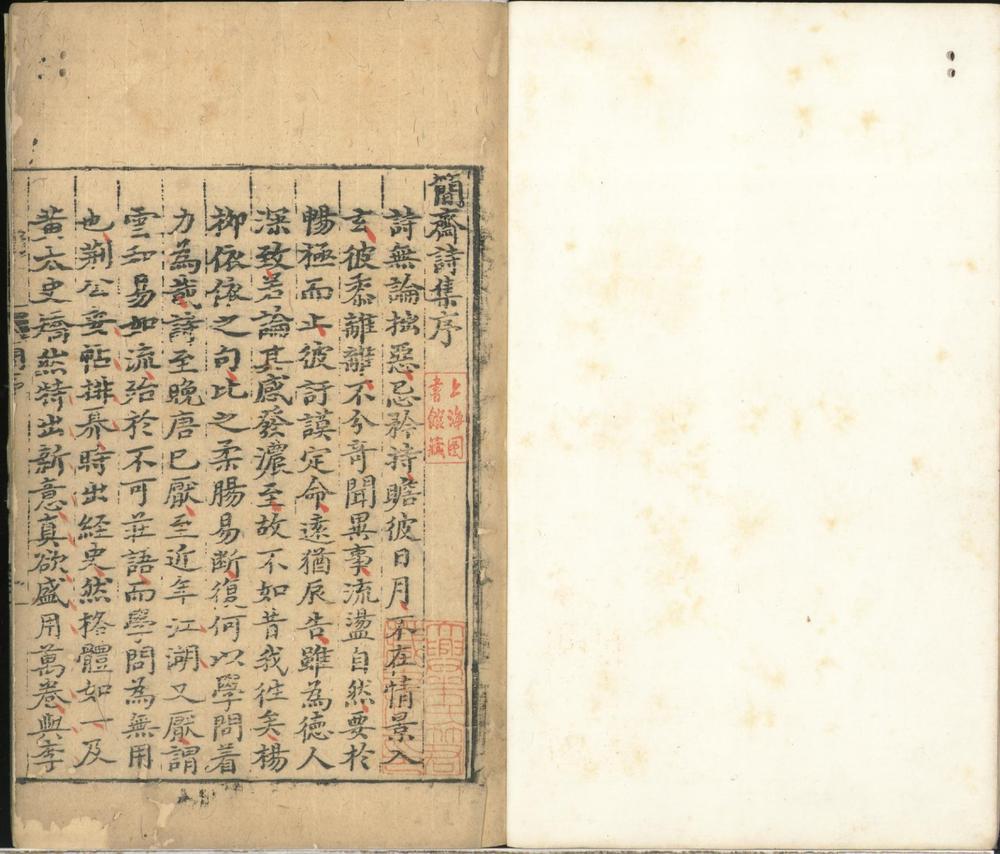 簡齋詩集序
詩無論拙惡忌矜持瞻彼日月不在情景入
玄彼黍離離不分奇聞異事流盪自然要於
暢極而止彼訏謨定命遠猶辰告雖為德人
深致若論其感發濃至故不如昔我徃矣楊
柳依依之句比之柔腸易断復何以學問着
力為㦲詩至晚唐已厭至近年江湖又厭謂
雲和易如流殆於不可莊語而學問為無用
也荆公妥帖排奡時出経史然格體如一及
黄太史矯然特出新意真欲盛用萬卷與李
上海圖
書館藏